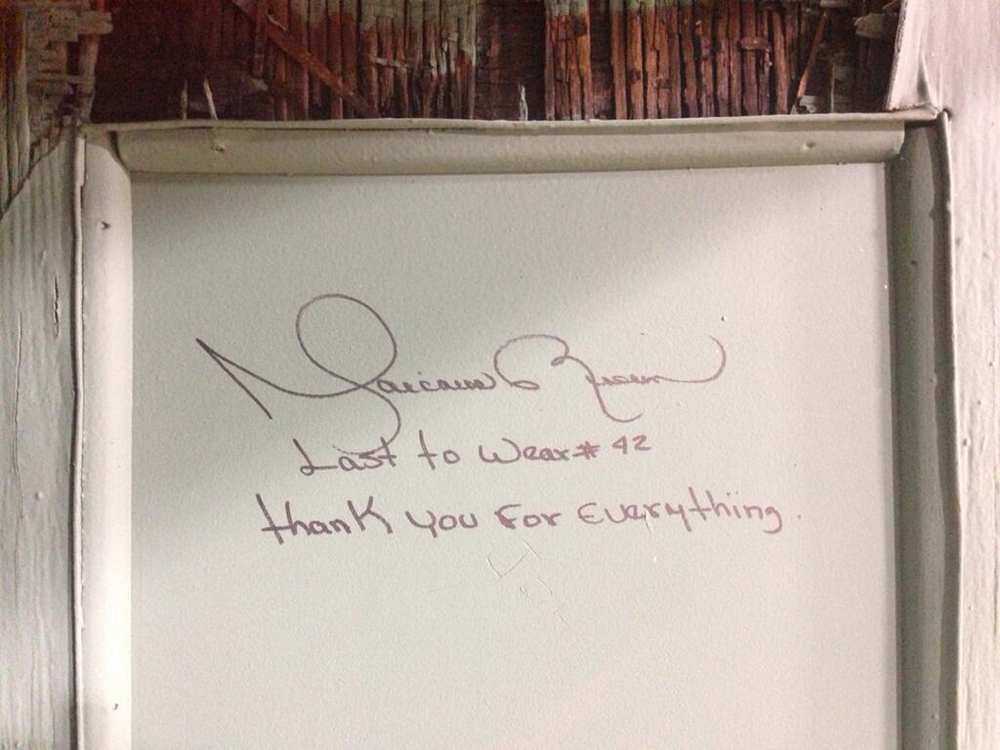 Mariano Rivera
Last to Wear # 42
thank you for Everything.